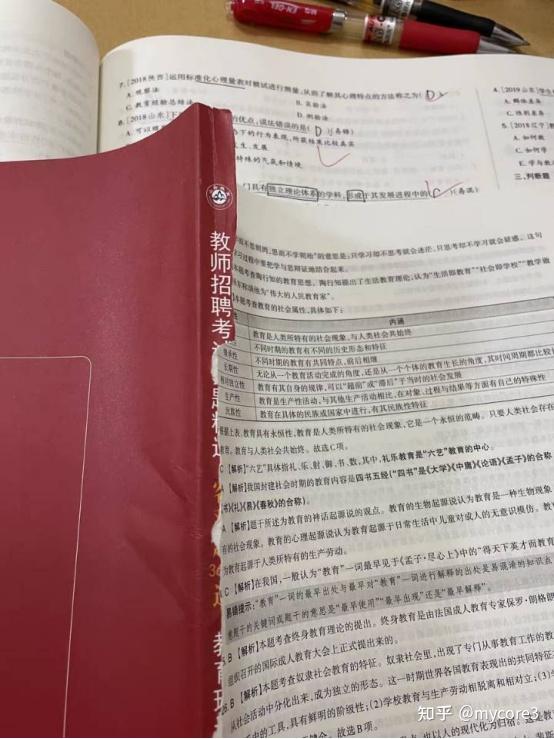 7. [2018陕西]运用标准化心理量表对被试进行测量,从而了解其心理特点的方法称之为( D
A. 观察法
B. 实验法
C. 教育经验总结法
D. 测验法
8. [2018山东]下
的优点,说法错误的是( D )(易错)
A. 可以
下的行为表现,所获结果比较真实
生、发展
特殊的气氛和情境
门具有独立理论体系的学科,形成于其发展过程中的( C )(易混)
4. [2019山东]学生
A. 群体差异
5. [2018辽宁]
A. 如何教
C. 如何学
E. 学与教
三、判断题
教师招聘考
教育
而不思则罔,思而不学则殆”的意思是:只学习却不思考就会迷茫,只思考却不学习就会疑惑。这句
习过程中要把学与思辩证地结合起来。
本题考查陶行知的教育思想。陶行知提出了生活教育理论,认为“生活即教育”“社会即学校”“教学做
东称颂他为“伟大的人民教育家”。
本题考查教育的社会属性,具体如下:
内涵
教育是人类所特有的社会现象,与人类社会共始终
不同时期的教育有不同的历史形态和特征
继承性 不同时期的教育有共同特点,前后相继
长期性 无论从一个教育活动完成的角度,还是从一个个体的教育生长的角度,其时间周期都比较
相对独立性 教育有其自身的规律,可以“超前”或“滞后”于当时的社会发展
生产性 教育是生产性活动,与其他生产活动相比,在对象、过程与结果等方面有自己的特殊性
民族性 教育在具体的民族或国家中进行,有其民族性特征
根据上表,教育具有永恒性,教育是人类所特有的社会现象,它是一个永恒的范畴。只要人类社会存在
教育,教育与人类社会共始终。故选C项。
C 【解析】“六艺”具体指礼、乐、射、御、书、数,其中,礼乐教育是“六艺”教育的中心。
【解析】我国封建社会时期的教育内容是四书五经(“四书”是《大学》《中庸》《论语》《孟子》的合称
《书》《礼》《易》《春秋》的合称)。
A 【解析】题干所述为教育的神话起源说的观点。教育的生物起源说认为教育是一种生物现象
有的社会现象。教育的心理起源说认为教育起源于日常生活中儿童对成人的无意识模仿。教育
为教育起源于人类所特有的生产劳动。
C 【解析】在我国,一般认为“教育”一词最早见于《孟子·尽心上》中的“得天下英才而教育
易错提示:“教育”一词的最早出处与最早对“教育”一词进行解释的出处是易混淆的知识点
意题干的关键词或题干的意思是“最早使用”“最早出现”还是“最早解释”。
B 【解析】本题考查终身教育理论的提出。终身教育是由法国成人教育专家保罗·朗格朗
组织召开的国际成人教育大会上正式提出来的。
B 【解析】本题考查奴隶社会教育的特征。奴隶社会里,出现了专门从事教育工作的教
从社会活动中分化出来,成为独立的形态。这一时期世界各国教育表现出的共同特征
中的工具,具有鲜明的阶级性;(2)学校教育与生产劳动相脱离和相对立;(3)学
故选B项。
知乎 @mycore3